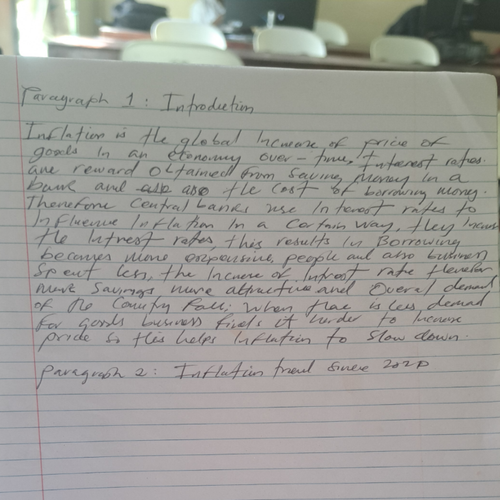 Paragraph 1: Introduction
Inflation is the global Increase of price of
goods In an economy over-time, Interest rates
are reward Obtained from Saving Money In a
bank and also the Cost of borrowing money.
Therefore Central banks use Interest rates to
Influence Inflation In a Certain way, they Increase
the Intrest rates, this results In Borrowing
becomes more expensive, people and also business
Spent less, the Increase of Intrest rate
make Savings more attractive and Overal demand
of the Country Falls; When there is less demand
for goods business finds it harder to Increase
price so this helps Inflation to Slow down.
Paragraph 2: Inflation trend since 2020